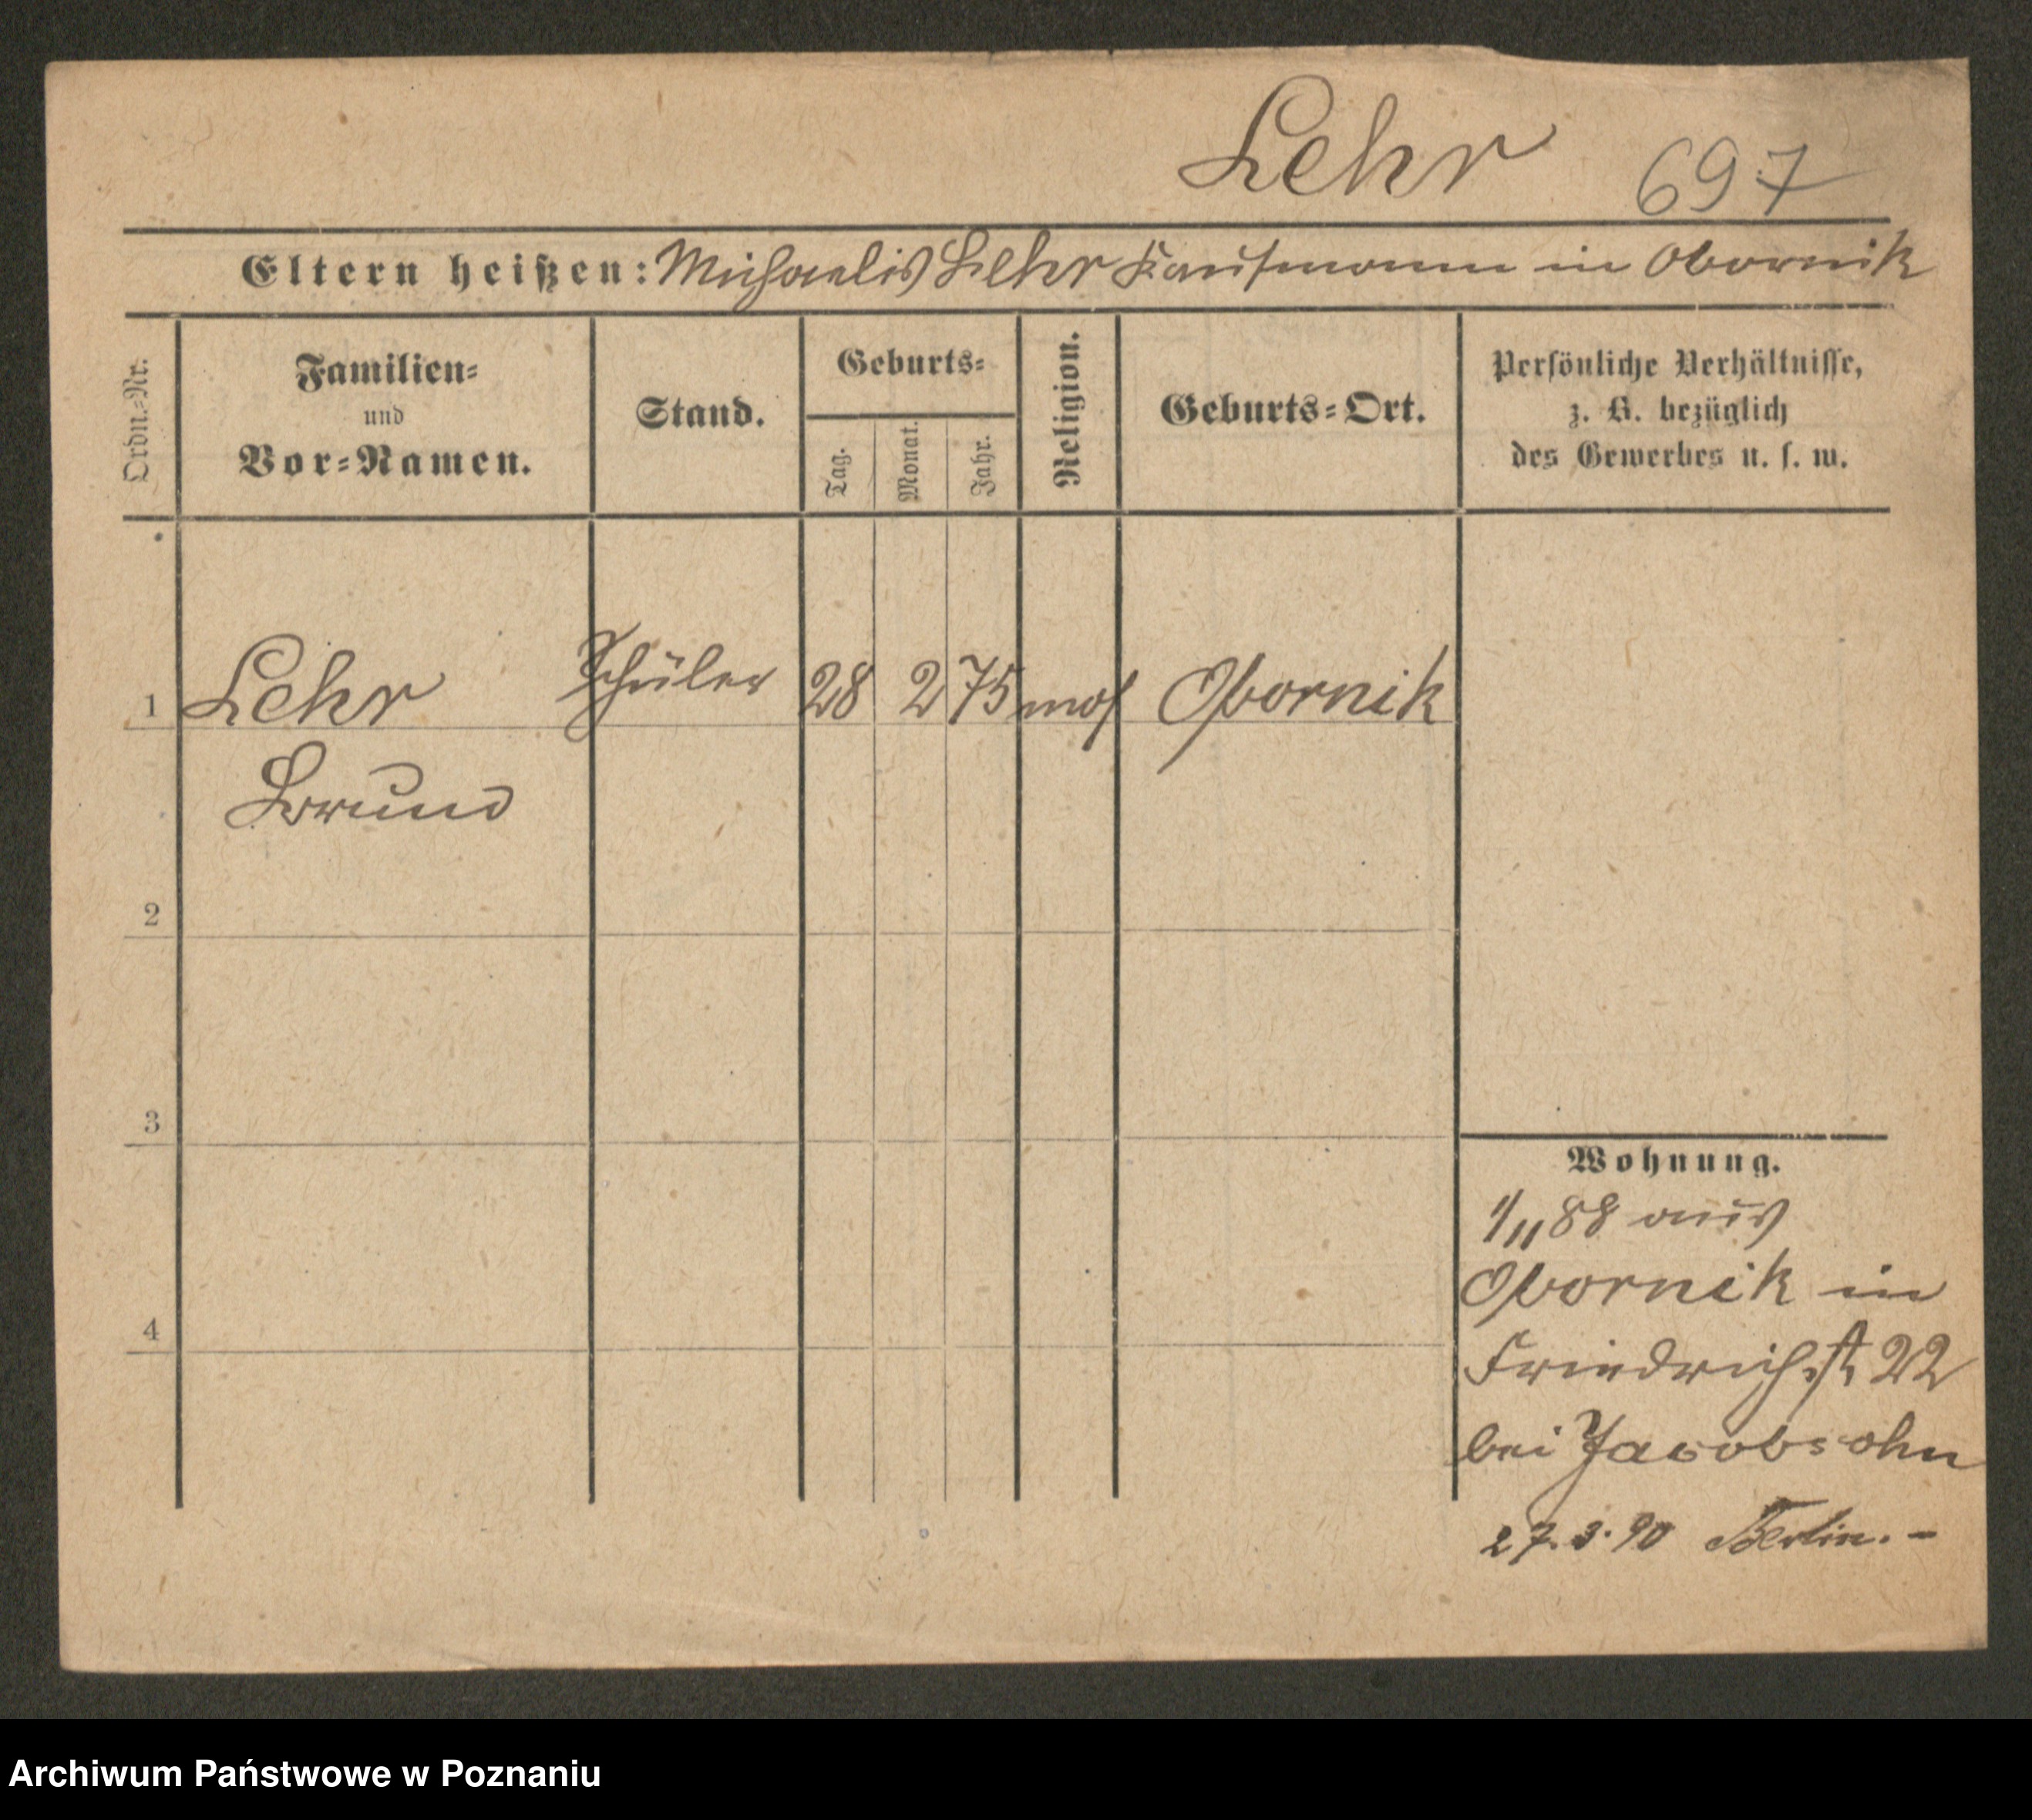 Lehr 697
Eltern heißen: Michaelis Lehr Kaufmann in Obornik
Ordn.-Nr.
Familien-
und
Vor-Namen.
Stand.
Geburts-
Tag.
Monat.
Jahr.
Religion.
Geburts-Ort.
Persönliche Verhältnisse,
z. B. bezüglich
des Gewerbes u. s. w.
1 Lehr Schüler 28 2 75 mos Obornik
Bruno
2
3
4
Wohnung.
1/11 88 aus
Obornik in
Friedrichstr 22
bei Jacobsohn
27.3.90 Berlin.-
Archiwum Państwowe w Poznaniu